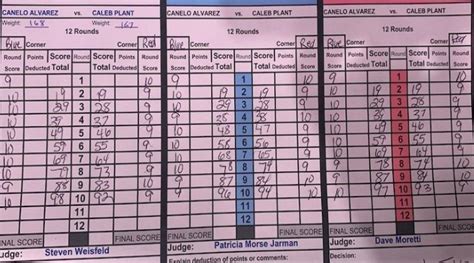 CANELO ALVAREZ vs. CALEB PLANT
Weight: 168 Weight: 167
12 Rounds
Blue Corner Corner Red
Round Score Points Deducted Score Total Round Score Total Points Deducted Round Score
9 1 10
10 19 2 19 9
10 29 3 28 9
10 39 4 37 9
10 49 5 46 9
10 59 6 55 9
10 69 7 64 9
10 79 8 73 9
9 88 9 83 10
10 98 10 92 9
11
12
FINAL SCORE FINAL SCORE
Judge: Steven Weisfeld
CANELO ALVAREZ vs. CALEB PLANT
12 Rounds
Blue Corner Corner Red
Round Score Points Deducted Score Total Round Score Total Points Deducted Round Score
9 1 10
10 19 2 19 9
10 29 3 28 9
9 38 4 38 10
10 48 5 47 9
10 58 6 56 9
10 68 7 65 9
10 78 8 9
9 87 9 84 10
9 96 10 94 10
11
12
FINAL SCORE FINAL SCORE
Judge: Patricia Morse Jarman
Explain deduction of points or comments:
CANELO ALVAREZ vs. CALEB PLANT
12 Rounds
Blue Corner Corner Red
Round Score Points Deducted Score Total Round Score Total Points Deducted Round Score
9 1 10
10 19 2 19 9
10 29 3 28 9
10 39 4 37 9
10 49 5 46 9
10 59 6 55 9
10 69 7 64 9
9 78 8 74 10
10 88 9 83 9
9 97 10 93 10
11
12
FINAL SCORE FINAL SCORE
Judge: Dave Moretti
Decision: